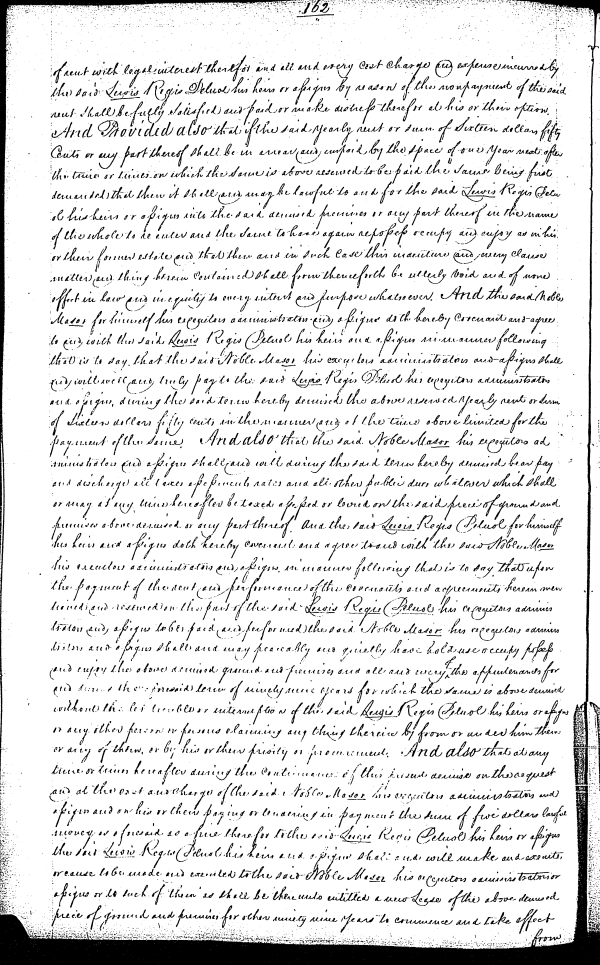 162
of rent with legal interest therefor and all and every cost charge and expense incurred by
the said Lewis Regis Pelust his heirs or assigns by reason of the nonpayment of the said
rent shall be fully satisfied and paid or make distress therefor at his or their option
And Provided also that if the said yearly rent or sum of Sixteen dollars fifty
Cents or any part thereof shall be in arrear and unpaid by the space of one year next after
the time or times on which the same is above reserved to be paid the same being first
demanded that then it shall and may be lawful to and for the said Lewis Regis Pelu
st his heirs or assigns into the said demised premises or any part thereof in the name
of the whole to re enter and the same to have again repossess occupy and enjoy as in his
or their former estate and that then and in such Case this indenture and every clause
matter and thing herein contained shall from thenceforth be utterly void and of none
effect in law and in equity to every intent and purpose whatsoever. And the said Noble
Masor for himself his executors administrators and assigns doth hereby Covenant and agree
to and with the said Lewis Regis Pelust his heirs and assigns in manner following
that is to say that the said Noble Masor his executors administrators and assigns shall
and will well and truly pay to the said Lewis Regis Pelust his executors administrators
and assigns, during the said term hereby demised the above reserved yearly rent or sum
of Sixteen dollars fifty cents in the manner and at the time above limited for the
payment of the same. And also that the said Noble Masor his executors ad
ministrators and assigns shall and will during the said term hereby demised bear pay
and discharge all taxes assessments rates and all other public dues whatever which shall
or may at any time hereafter be taxed assessed or levied on the said piece of ground and
premises above demised or any part thereof. And the said Lewis Regis Pelust for himself
his heirs and assigns doth hereby covenant and agree to and with the said Noble Masor
his executors administrators and assigns, in manner following that is to say, that upon
the payment of the rent and performance of the covenants and agreements herein men
tioned and reserved on the part of the said Lewis Regis Pelust his executors adminis
trators and assigns to be paid and performed the said Noble Masor his executors adminis
trators and assigns shall and may peaceably and quietly have hold use occupy possess
and enjoy the above demised ground and premises and all and every the appurtenances for
and during the aforesaid term of ninety nine years for which the same is above demised
without the let trouble or interruption of the said Lewis Regis Pelust his heirs or assigns
or any other person or persons claiming any thing therein by from or under him them
or any of them, or by his or their privity or procurement. And also that at any
time or times hereafter during the continuance of this present demise on the request
and at the cost and charge of the said Noble Masor his executors administrators and
assigns and on his or them paying or tendering in payment the sum of five dollars lawful
money as aforesaid as a fine therefor to the said Lewis Regis Pelust his heirs or assigns
the said Lewis Regis Pelust his heirs and assigns shall and will make and execute
or cause to be made and executed to the said Noble Masor his executors administrators or
assigns or to such of them as shall be then unto entitled a new Lease of the above demised
piece of ground and premises for other ninety nine years to commence and take effect
from